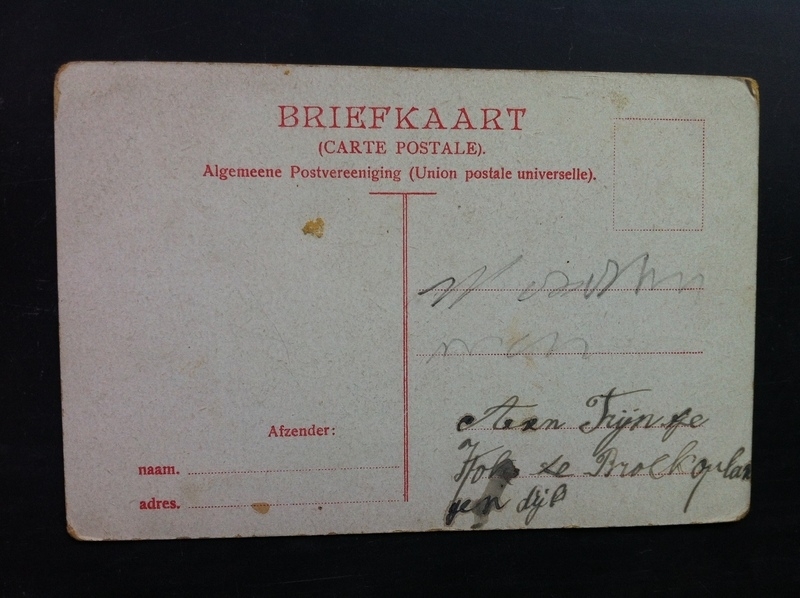 BRIEFKAART
(CARTE POSTALE).
Algemeene Postvereeniging (Union postale universelle).
Afzender:
naam.
adres.
Aan Trijntje
Kok te Broek op Lan
gen dijk